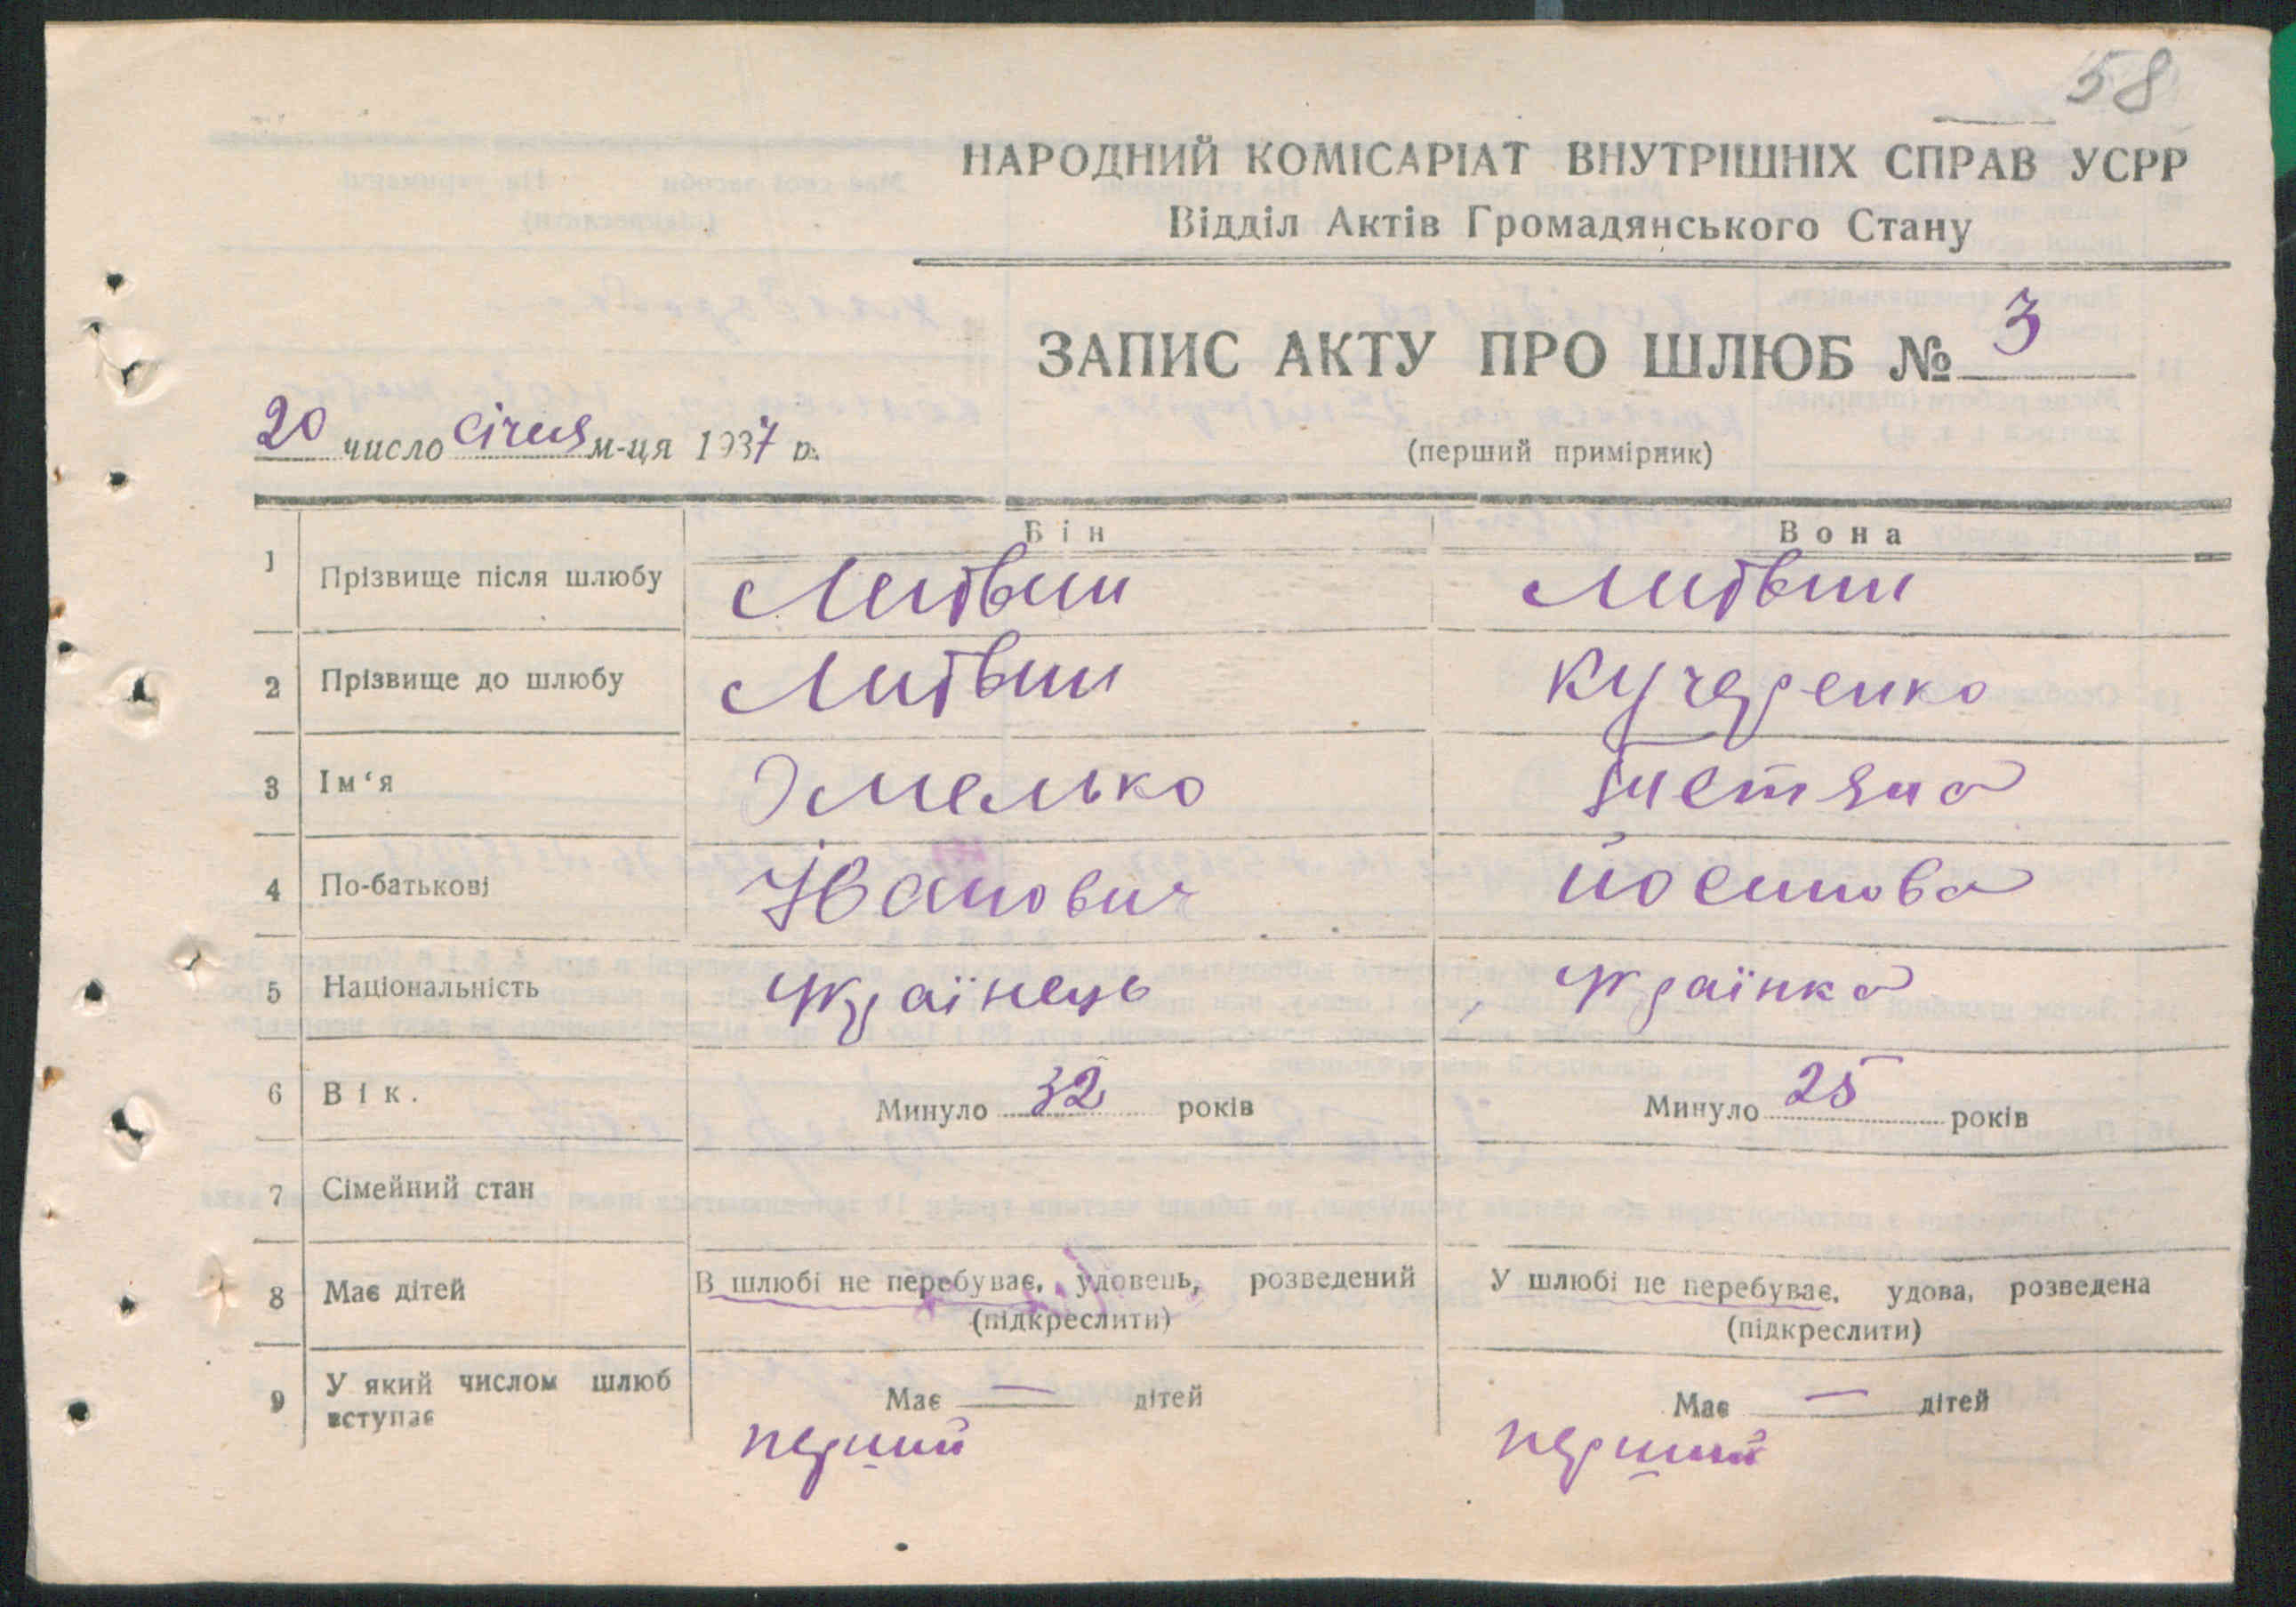 58
НАРОДНИЙ КОМІСАРІАТ ВНУТРІШНІХ СПРАВ УСРР
Відділ Актів Громадянського Стану
ЗАПИС АКТУ ПРО ШЛЮБ № 3
20 число січня м-ця 1937 р.
(перший примірник)
Він Вона
1 Прізвище після шлюбу Литвин Литвин
2 Прізвище до шлюбу Литвин Кучеренко
3 Ім‘я Омелько
4 По-батькові Іванович Йосипова
5 Національність Українець Українка
6 Вік. Минуло 32 років Минуло 25 років
7 Сімейний стан
8 Має дітей В шлюбі не перебуває, удовець, розведений У шлюбі не перебуває, удова, розведена
(підкреслити) (підкреслити)
9 У який числом шлюб вступає Має — дітей Має — дітей
перший перший